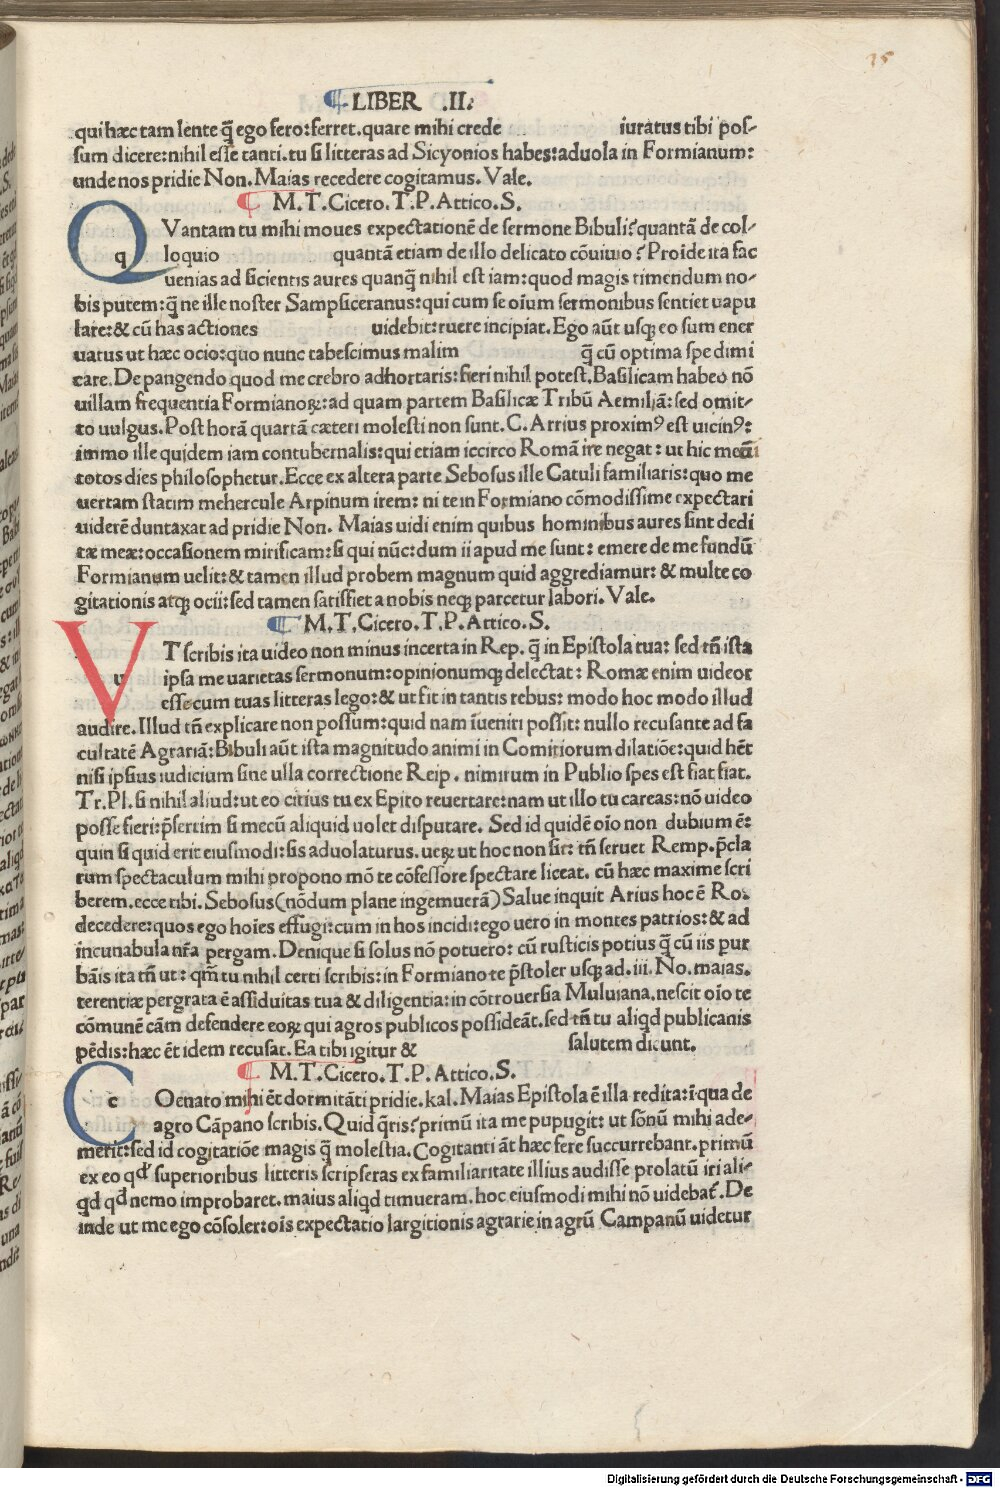 15
LIBER .II.
qui hæc tam lente q̄ ego fero: ferret. quare mihi crede iuratus tibi pos-
sum dicere: nihil esse tanti. tu si litteras ad Sicyonios habes: aduola in Formianum:
unde nos pridie Non. Maias recedere cogitamus. Vale.
M.T. Cicero. T.P. Attico. S.
Q q Vantam tu mihi moues expectationē de sermone Bibuli? quantā de col-
loquio quantā etiam de illo delicato cōuiuio? Proīde ita fac
uenias ad sicientis aures quanq̄ nihil est iam: quod magis timendum no-
bis putem: q̄ ne ille noster Sampsiceranus: qui cum se oīum sermonibus sentiet uapu
lare: & cū has actiones uidebit: ruere incipiat. Ego aūt usq; eo sum ener
uatus ut hæc ocio: quo nunc tabescimus malim q̄ cū optima spe dimi
care. De pangendo quod me crebro adhortaris: fieri nihil potest. Basilicam habeo nō
uillam frequentia Formianoꝝ: ad quam partem Basilicæ Tribū Aemiliā: sed omit-
to uulgus. Post horā quartā cæteri molesti non sunt. C. Arrius proximꝰ est uicinꝰ:
immo ille quidem iam contubernalis: qui etiam iccirco Romā ire negat: ut hic mecū
totos dies philosophetur. Ecce ex altera parte Sebosus ille Catuli familiaris: quo me
uertam statim mehercule Arpinum irem: ni te in Formiano cōmodissime expectari
uiderē duntaxat ad pridie Non. Maias uidi enim quibus hominibus aures sint dedi
tæ meæ: occasionem mirificam: si qui nūc: dum ii apud me sunt: emere de me fundū
Formianum uelit: & tamen illud probem magnum quid aggrediamur: & multe co
gitationis atq; ocii: sed tamen satisfiet a nobis neq; parcetur labori. Vale.
M.T. Cicero. T.P. Attico. S.
V u T scribis ita uideo non minus incerta in Rep. q̄ in Epistola tua: sed tn̄ ista
ipsa me uarietas sermonum: opinionumq; delectat: Romæ enim uideor
esse cum tuas litteras lego: & ut fit in tantis rebus: modo hoc modo illud
audire. Illud tn̄ explicare non possum: quid nam īueniri possit: nullo recusante ad fa
cultatē Agrariā: Bibuli aūt ista magnitudo animi in Comitiorum dilatiōe: quid hēt
nisi ipsius iudicium sine ulla correctione Reip. nimirum in Publio spes est fiat fiat.
Tr. Pl. si nihil aliud: ut eo citius tu ex Epiro reuertare: nam ut illo tu careas: nō uideo
posse fieri: p̄sertim si mecū aliquid uolet disputare. Sed id quidē oīo non dubium ē:
quin si quid erit eiusmodi: sis aduolaturus. ueꝝ ut hoc non sit: tn̄ seruet Remp. p̄cla
rum spectaculum mihi propono mō te cōfessore spectare liceat. cū hæc maxime scri
berem. ecce tibi. Sebosus (nōdum plane ingemuerā) Salue inquit Arius hoc ē Ro.
decedere: quos ego hoīes effugi: cum in hos incidi: ego uero in montes patrios: & ad
incunabula nr̄a pergam. Denique si solus nō potuero: cū rusticis potius q̄ cū iis pur
bāis ita tn̄ ut: qm̄ tu nihil certi scribis: in Formiano te p̄stoler usq; ad. iii. No. maias.
terentiæ pergrata ē assiduitas tua & diligentia: in cōtrouersia Muluiana. nescit oīo te
cōmunē cām defendere eoꝝ qui agros publicos possideāt. sed tn̄ tu aliqd publicanis
pēdis: hæc ēt idem recusat. Ea tibi igitur & salutem dicunt.
M.T. Cicero. T.P. Attico. S.
C c Oenato mihi ēt dormitāti pridie. kal. Maias Epistola ē illa redita: ī qua de
agro Cāpano scribis. Quid q̄ris? primū ita me pupugit: ut sōnū mihi ade-
merit: sed id cogitatiōe magis q̄ molestia. Cogitanti āt hæc fere succurrebant. primū
ex eo qd' superioribus litteris scripseras ex familiaritate illius audisse prolatū iri ali-
qd qd nemo improbaret. maius aliqd timueram. hoc eiusmodi mihi nō uidebat̄. De
inde ut me ego cōsoler: oīs expectatio largitionis agrarie in agrū Campanū uidetur
Digitalisierung gefördert durch die Deutsche Forschungsgemeinschaft - DFG